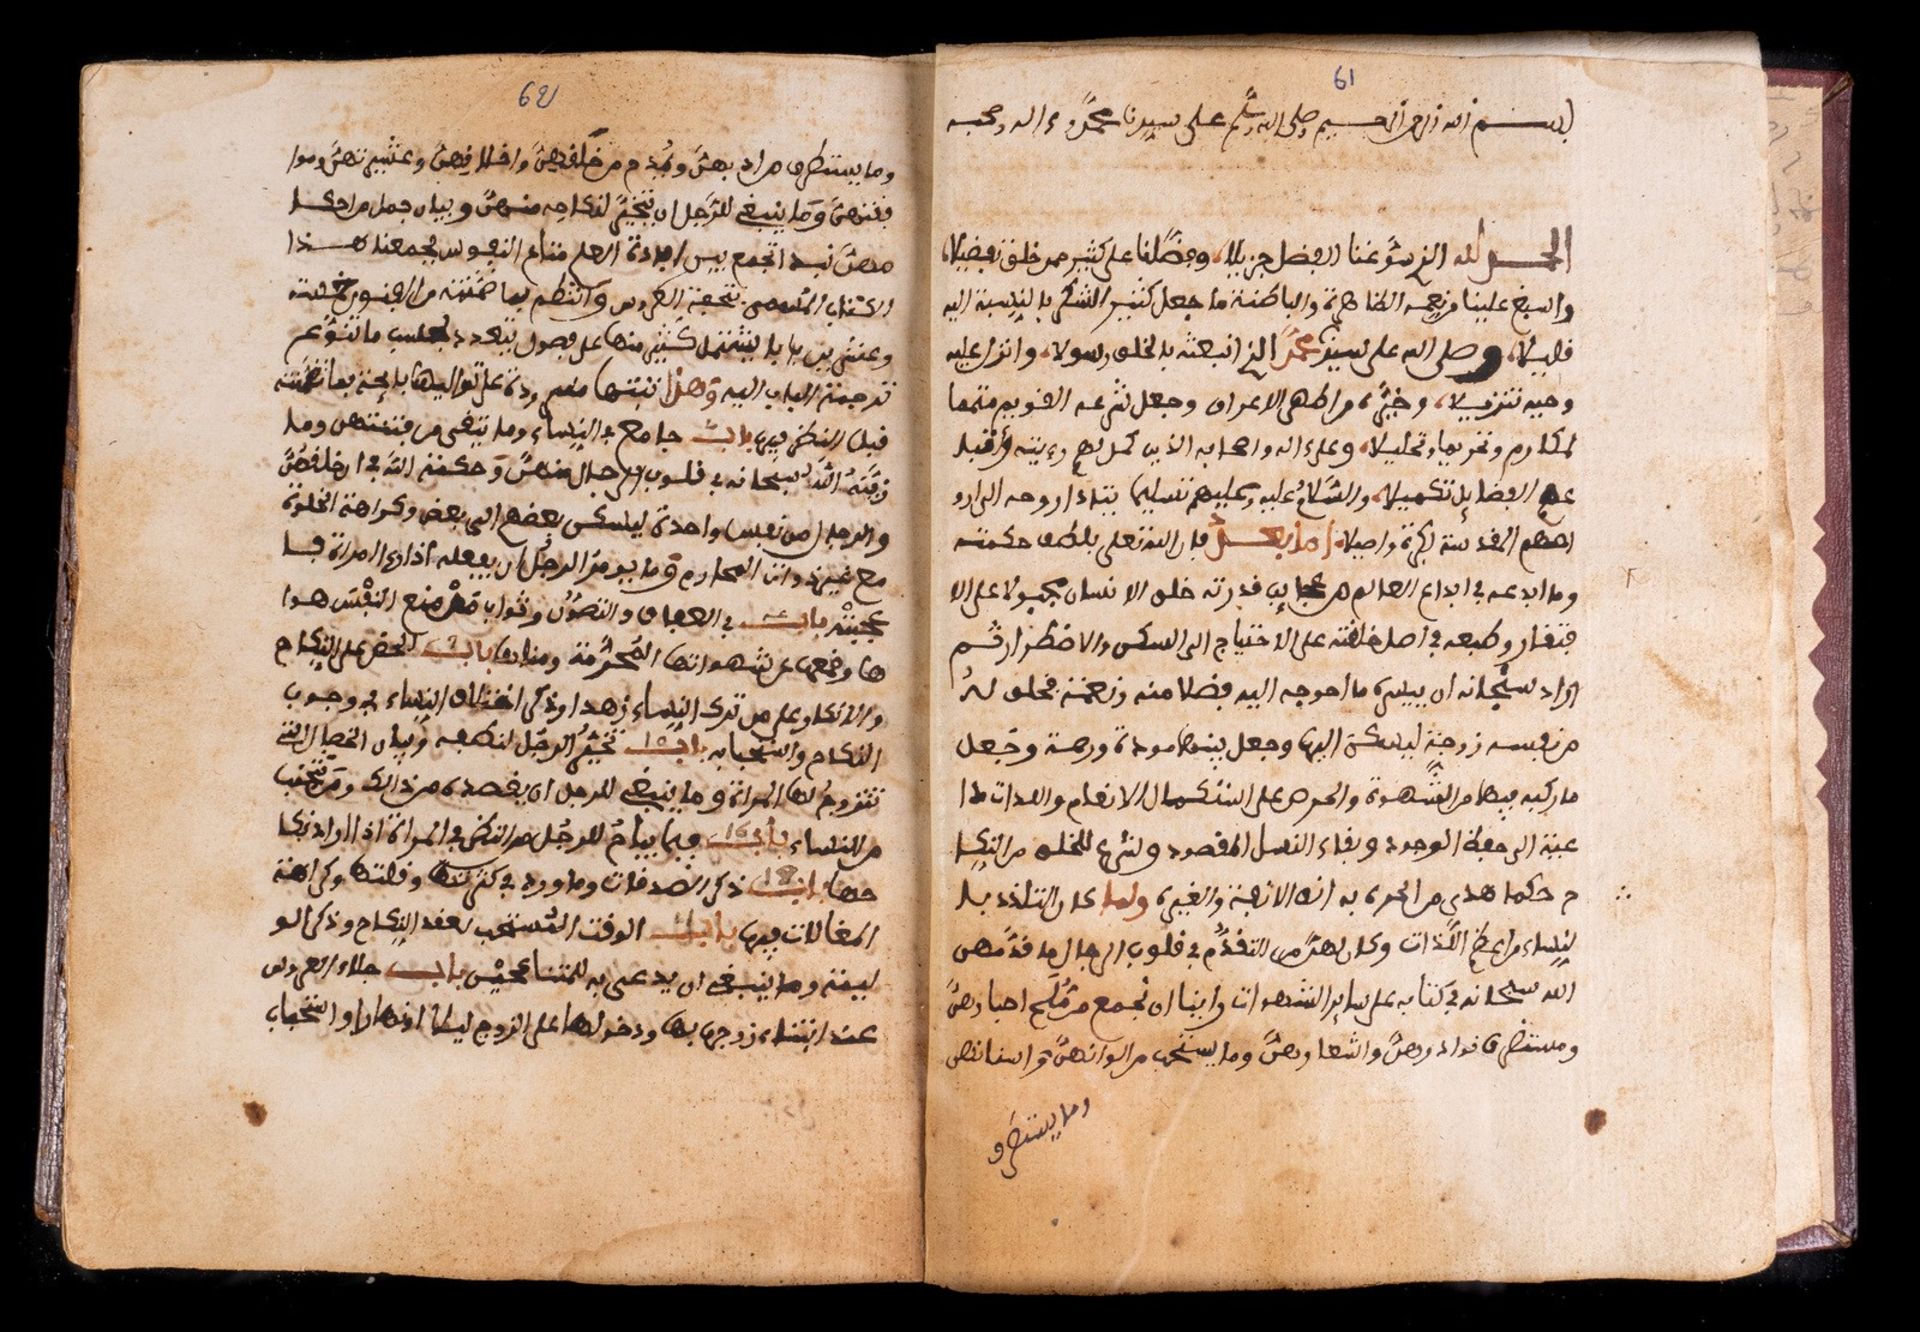 61
بسم الله الرحمن الرحيم وصلى الله وسلم على سيدنا محمد وءاله وصحبه
الحمد لله الذي سوغنا الفضل جزيلا، وفضلنا على كثير ممن خلق تفضيلا،
واسبغ علينا من نعمه الظاهرة والباطنة ما جعل كثير الشكر بالنسبة اليه
قليلا، وصلى الله على سيدنا محمد الذي ابتعثه بالخلق رسولا، وانزل عليه
وحيه تنزيلا، وخيره من اطهر الاعراق وجعل شرعه القويم متمما
لمكارم وتحريما وتحليلا، وعلى ءاله واصحابه الذين كمل لهم رءيته
الفضايل تكميلا، والسلام عليه وعليهم تسليما
بكرة واصيلا، اما بعد فان الله تعلى بلطف حكمته
وما ابدعه في ابداع العالم من عجايب قدرته خلق الانسان مجبولا على الا
فتقار وطبعه في اصل خلقته على الاحتياج الى السكن والاضطرار ثم
اراد سبحانه ان ييسر ما احوجه اليه فضلا منه ونعمة فخلق له
من نفسه زوجة ليسكن اليها وجعل بينهما مودة ورحمة وجعل
ما ركبه فيها من الشهوة والحرص على استكمال الانعام واللذات دا
عية الى حفظ الوجود وبقاء النسل المقصود وشرع للخلق من النكا
ح حكما هدى من الحيرة به اذهب الانفة والغيرة ولما كان التلذذ با
لنساء من اعظم اللذات وكان لهن من التقدم في قلوب الرجال ما قدمهن
الله سبحانه في كتابه على ساير الشهوات راينا ان نجمع من ملح اخبارهن
ومستظرف نوادرهن واشعارهن وما يستحب من الوانهن واسنانهن
وما يستطرف
62
وما يستطرف من ادبهن ويذم من خلقهن واخلاقهن
فقتهن وما ينبغي للرجل ان يتخير لنكاحه منهن وبيان جمل من احكا
مهن نبدا تجمع بين افادة العلم متاع النفوس فجمعنا هذا
الكتاب المسمى بتحفة العروس وانتظم بما ضمنته من الفنون خمسة
وعشرين بابا يشتمل كثير منها على فصول تتعدد بحسب ما تنوع
ترجمة الباب اليه وهذا ثبتها
قبل النظر فيها باب جامع في النساء وما يتقى من فتنتهن وما
زينه الله سبحانه في قلوب الرجال منهن وحكمة الله في ان خلقهن
والرجال من نفس واحدة ليسكن بعضهم الى بعض وكراهة الخلوة
مع غير ذوات المحارم وما يومر الرجل ان يفعله اذا راى المراة فا
عجبته باب في العفاف والتصون وثواب من منع النفس هوا
ها وقمعها عن شهواتها المحرمة باب الحض على النكاح
والانكار على من ترك النساء زهدا وذكر اختلاف النساء في وجوب
النكاح واستحبابه باب تخير الرجل لنطفه وبيان الخصال التي
تتزوج لها المراة وما ينبغي للرجل ان يقصده من ذالك ومن تجتنب
من النساء باب فيما يباح للرجل من النظر في المراة اذا اراد نكا
حها باب ذكر الصدقات وما ورد في كثرتها وقلتها وكراهة
المغالات فيها باب الوقت المستحب لعقد النكاح وذكر الو
ليمة وما ينبغي ان يدعى به للمتناكحين باب جلاء العروس
عند ابتناء زوجها بها ودخولها على الزوج ليلا او نهارا واستحباب